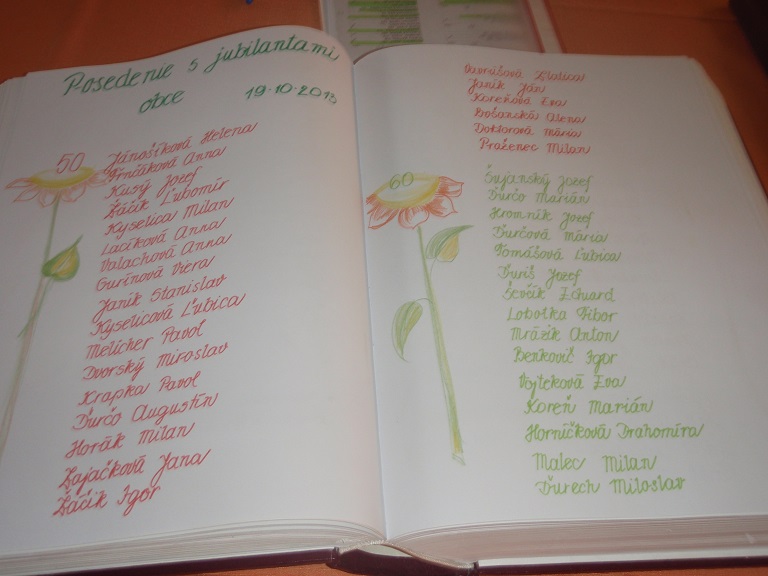 Posedenie s jubilantami
obce 19.10.2013
50
Jánošíková Helena
Trnčáková Anna
Kusý Jozef
Žáčik Ľubomír
Kyselica Milan
Laciková Anna
Valachová Anna
Gurínová Viera
Janík Stanislav
Kyselicová Ľubica
Melicher Pavol
Dvorský Miroslav
Krapka Pavol
Ďurčo Augustín
Horák Milan
Zajačková Jana
Žáčik Igor
Zlatica
Janík Ján
Koreňová Eva
Bošanská Alena
Doktorová Mária
Praženec Milan
60
Šujanský Jozef
Ďurčo Marián
Hromník Jozef
Ďurčová Mária
Tomášová Ľubica
Ďuriš Jozef
Ševčík Eduard
Lobotka Tibor
Mrázik Anton
Beňkovič Igor
Vojteková Eva
Koreň Marián
Horníčková Drahomíra
Malec Milan
Ďurech Miloslav